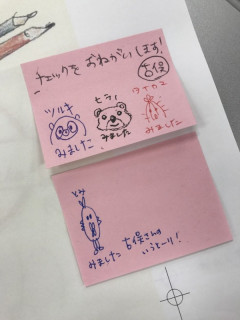 チェックをおねがいします!
古俣
ツルキ
みました
ヒラノ
みました
みました
とみ
みました 古俣さんの
いうとーり!